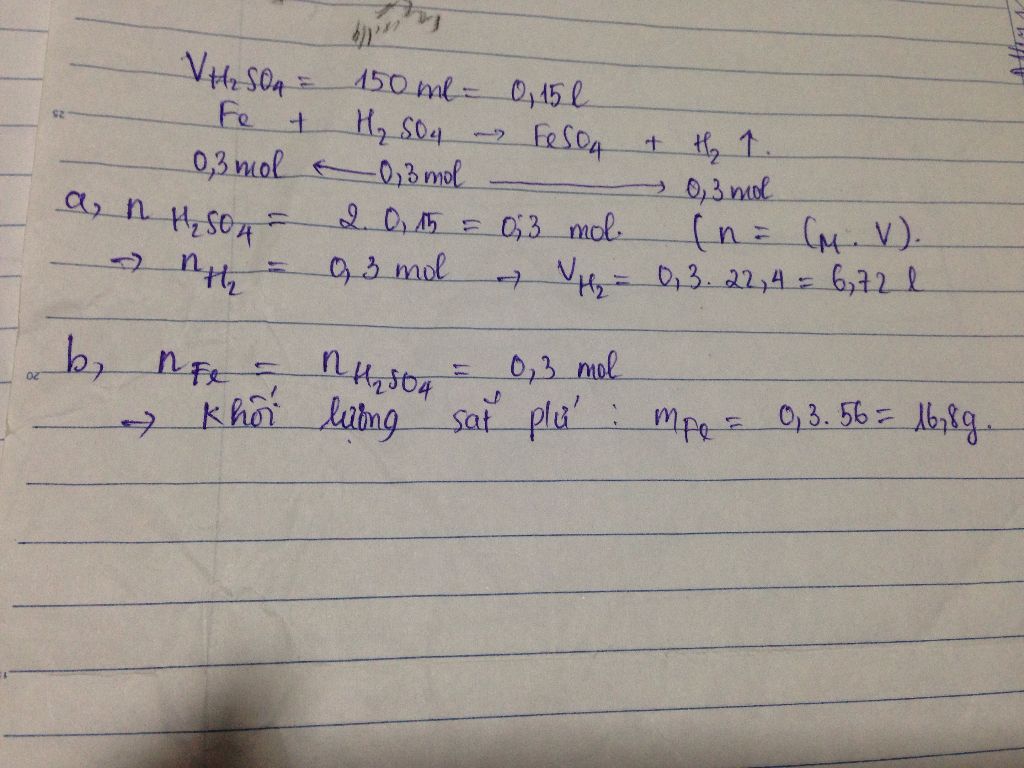 V H₂SO₄ = 150 ml = 0,15 l
Fe + H₂SO₄ → FeSO₄ + H₂ ↑.
0,3 mol ← 0,3 mol → 0,3 mol
a, n H₂SO₄ = 2. 0,15 = 0,3 mol. (n = CM. V).
→ n H₂ = 0,3 mol → V H₂ = 0,3. 22,4 = 6,72 l
b, n Fe = n H₂SO₄ = 0,3 mol
→ Khối lượng sắt pứ : m Fe = 0,3. 56 = 16,8g.